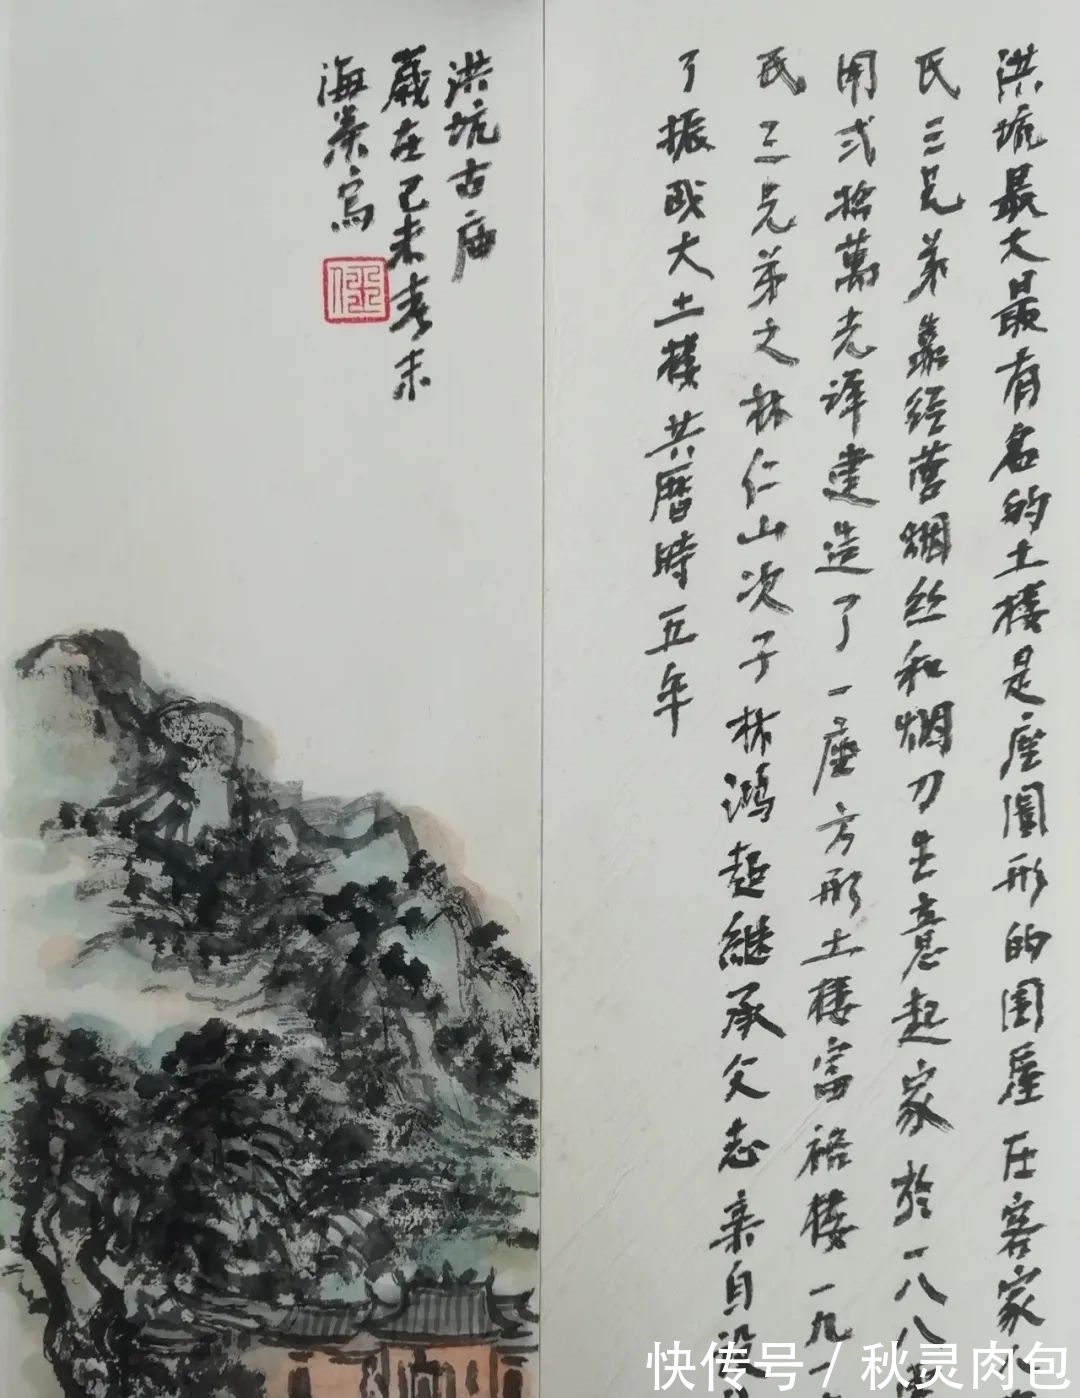 洪坑最大最有名的土楼是座圆形的围屋在客家人
氏三兄弟靠经营烟丝和烟刀生意起家於一八八
用弍拾萬光洋建造了一座方形土楼富裕楼一九一
氏三兄弟之林仁山次子林鴻超継承父志亲自設
了振成大土楼共曆時五年
洪坑古庙
歳在己未春末
海泉寫
快传号 / 秋灵肉包